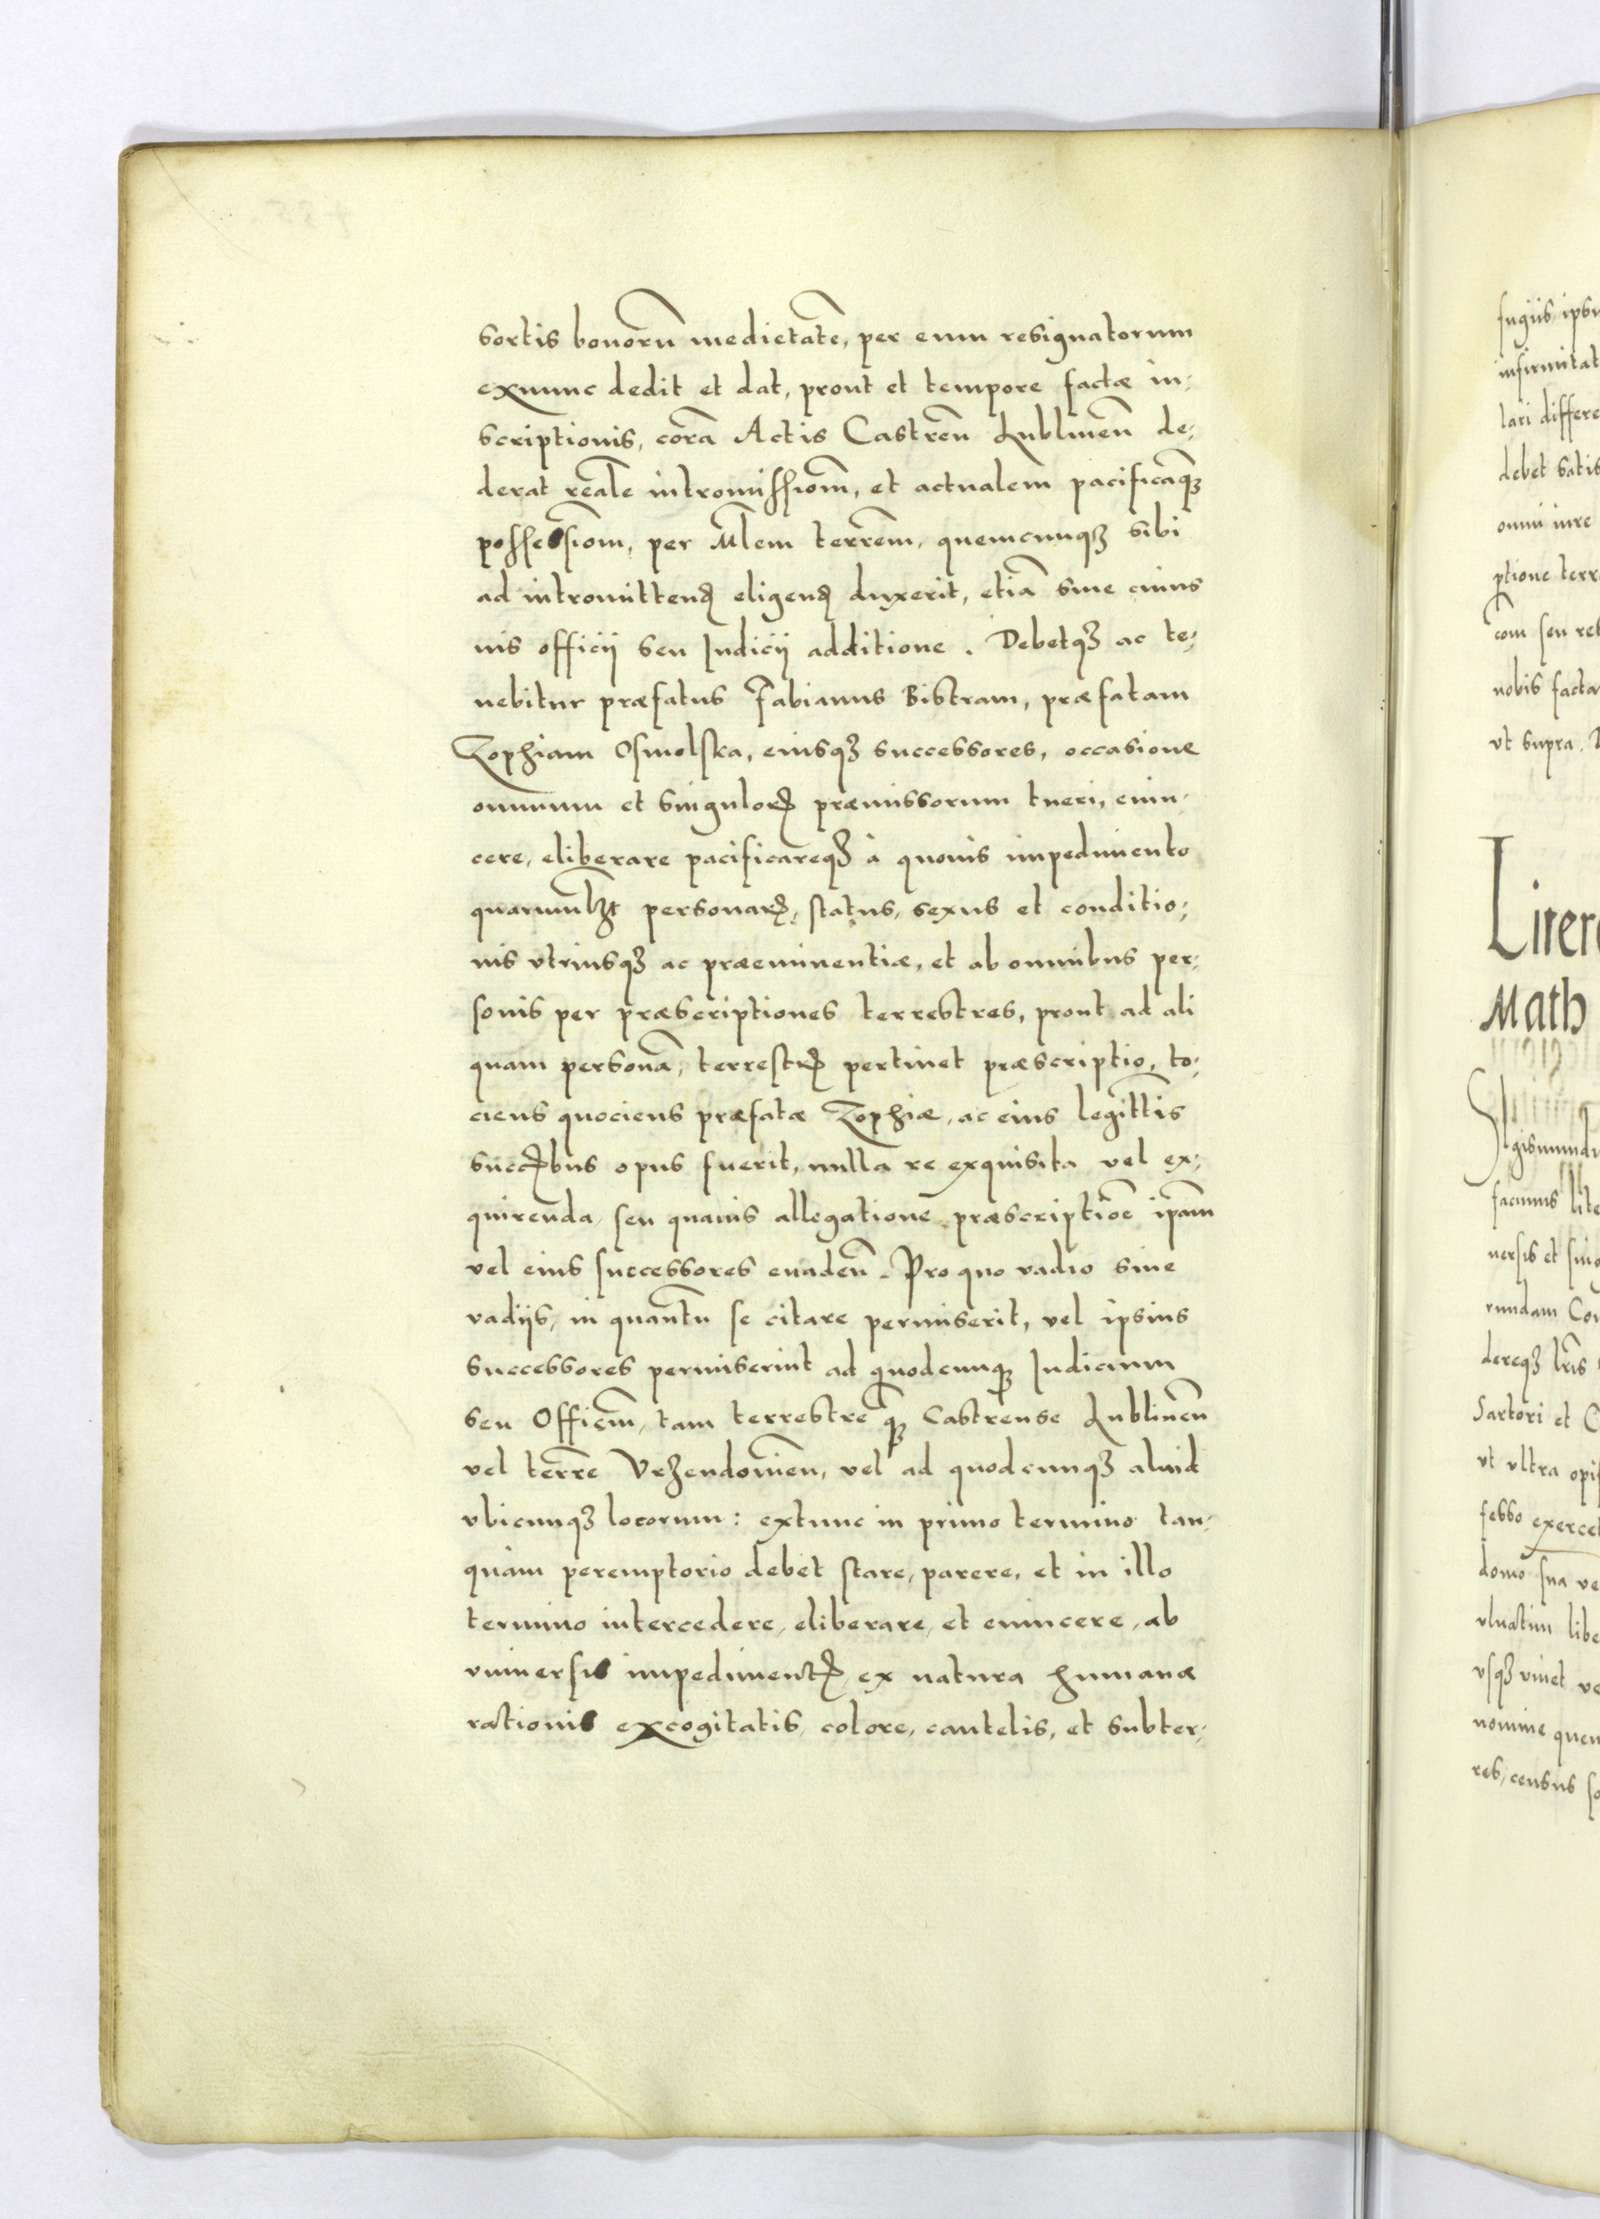 sortis bonorū medietatē, per eum resignatorum
exnunc dedit et dat, prout et tempore factæ in:
scriptionis, corā Actis Castreñ Lublineñ de:
derat realē intromissioñm, et actualem pacificāqꝫ
possessioñm, per Mlem terreñm, quemcunqꝫ sibi
ad intromittendꝫ eligendꝫ duxerit, etiā sine cuius
vis officij seu Iudicij additione. Debetqꝫ ac te:
nebitur præfatus Fabianus Bistram, præfatam
Zophiam Osmolska, eiusqꝫ successores, occasione
omnium et singuloꝝ præmissorum tueri, euin:
cere, eliberare pacificareqꝫ à quouis impedimento
quarumlꝫt personaꝝ, status, sexus et conditio:
nis vtriusqꝫ ac præeminentiæ, et ab omnibus per:
sonis per præscriptiones terrestres, prout ad ali
quam personā, terrestꝝ pertinet præscriptio, to:
ciens quociens præfatæ Zophiæ, ac eius legittīs
succꝝbus opus fuerit, nulla re exquisita vel ex:
quirenda, seu quauis allegatione præscriptiōe ipam̄
vel eius successores euadeñ. Pro quo vadio siue
vadijs, in quantū se citare permiserit, vel ipsius
successores permiserint ad quodcunqꝫ Iudicium
seu Offiçm̄, tam terrestre qꝫ Castrense Lublineñ
vel terrē Vrzendouieñ, vel ad quodcunqꝫ aliud
vbicunqꝫ locorum: extunc in primo termino tan:
quam peremptorio debet stare, parere, et in illo
termino intercedere, eliberare, et euincere, ab
vniuersis impedimentꝭ ex natura humanæ
rationis excogitatis, colore, cautelis, et subter:
fugijs, ipsu
infirmitat
lari differe
debet satis
omni iure
ptione terre
com̄ seu rel
nobis facta
vt supra.
Liter
Math
Sigismundu
facimus lite
uersis et sing
rundam Con
dereqꝫ lr̄is
Sartori et C
vt vltra opif
fesso exercet
domo sua ve
vsqꝫ viuet ve
nomine quem
res, census so